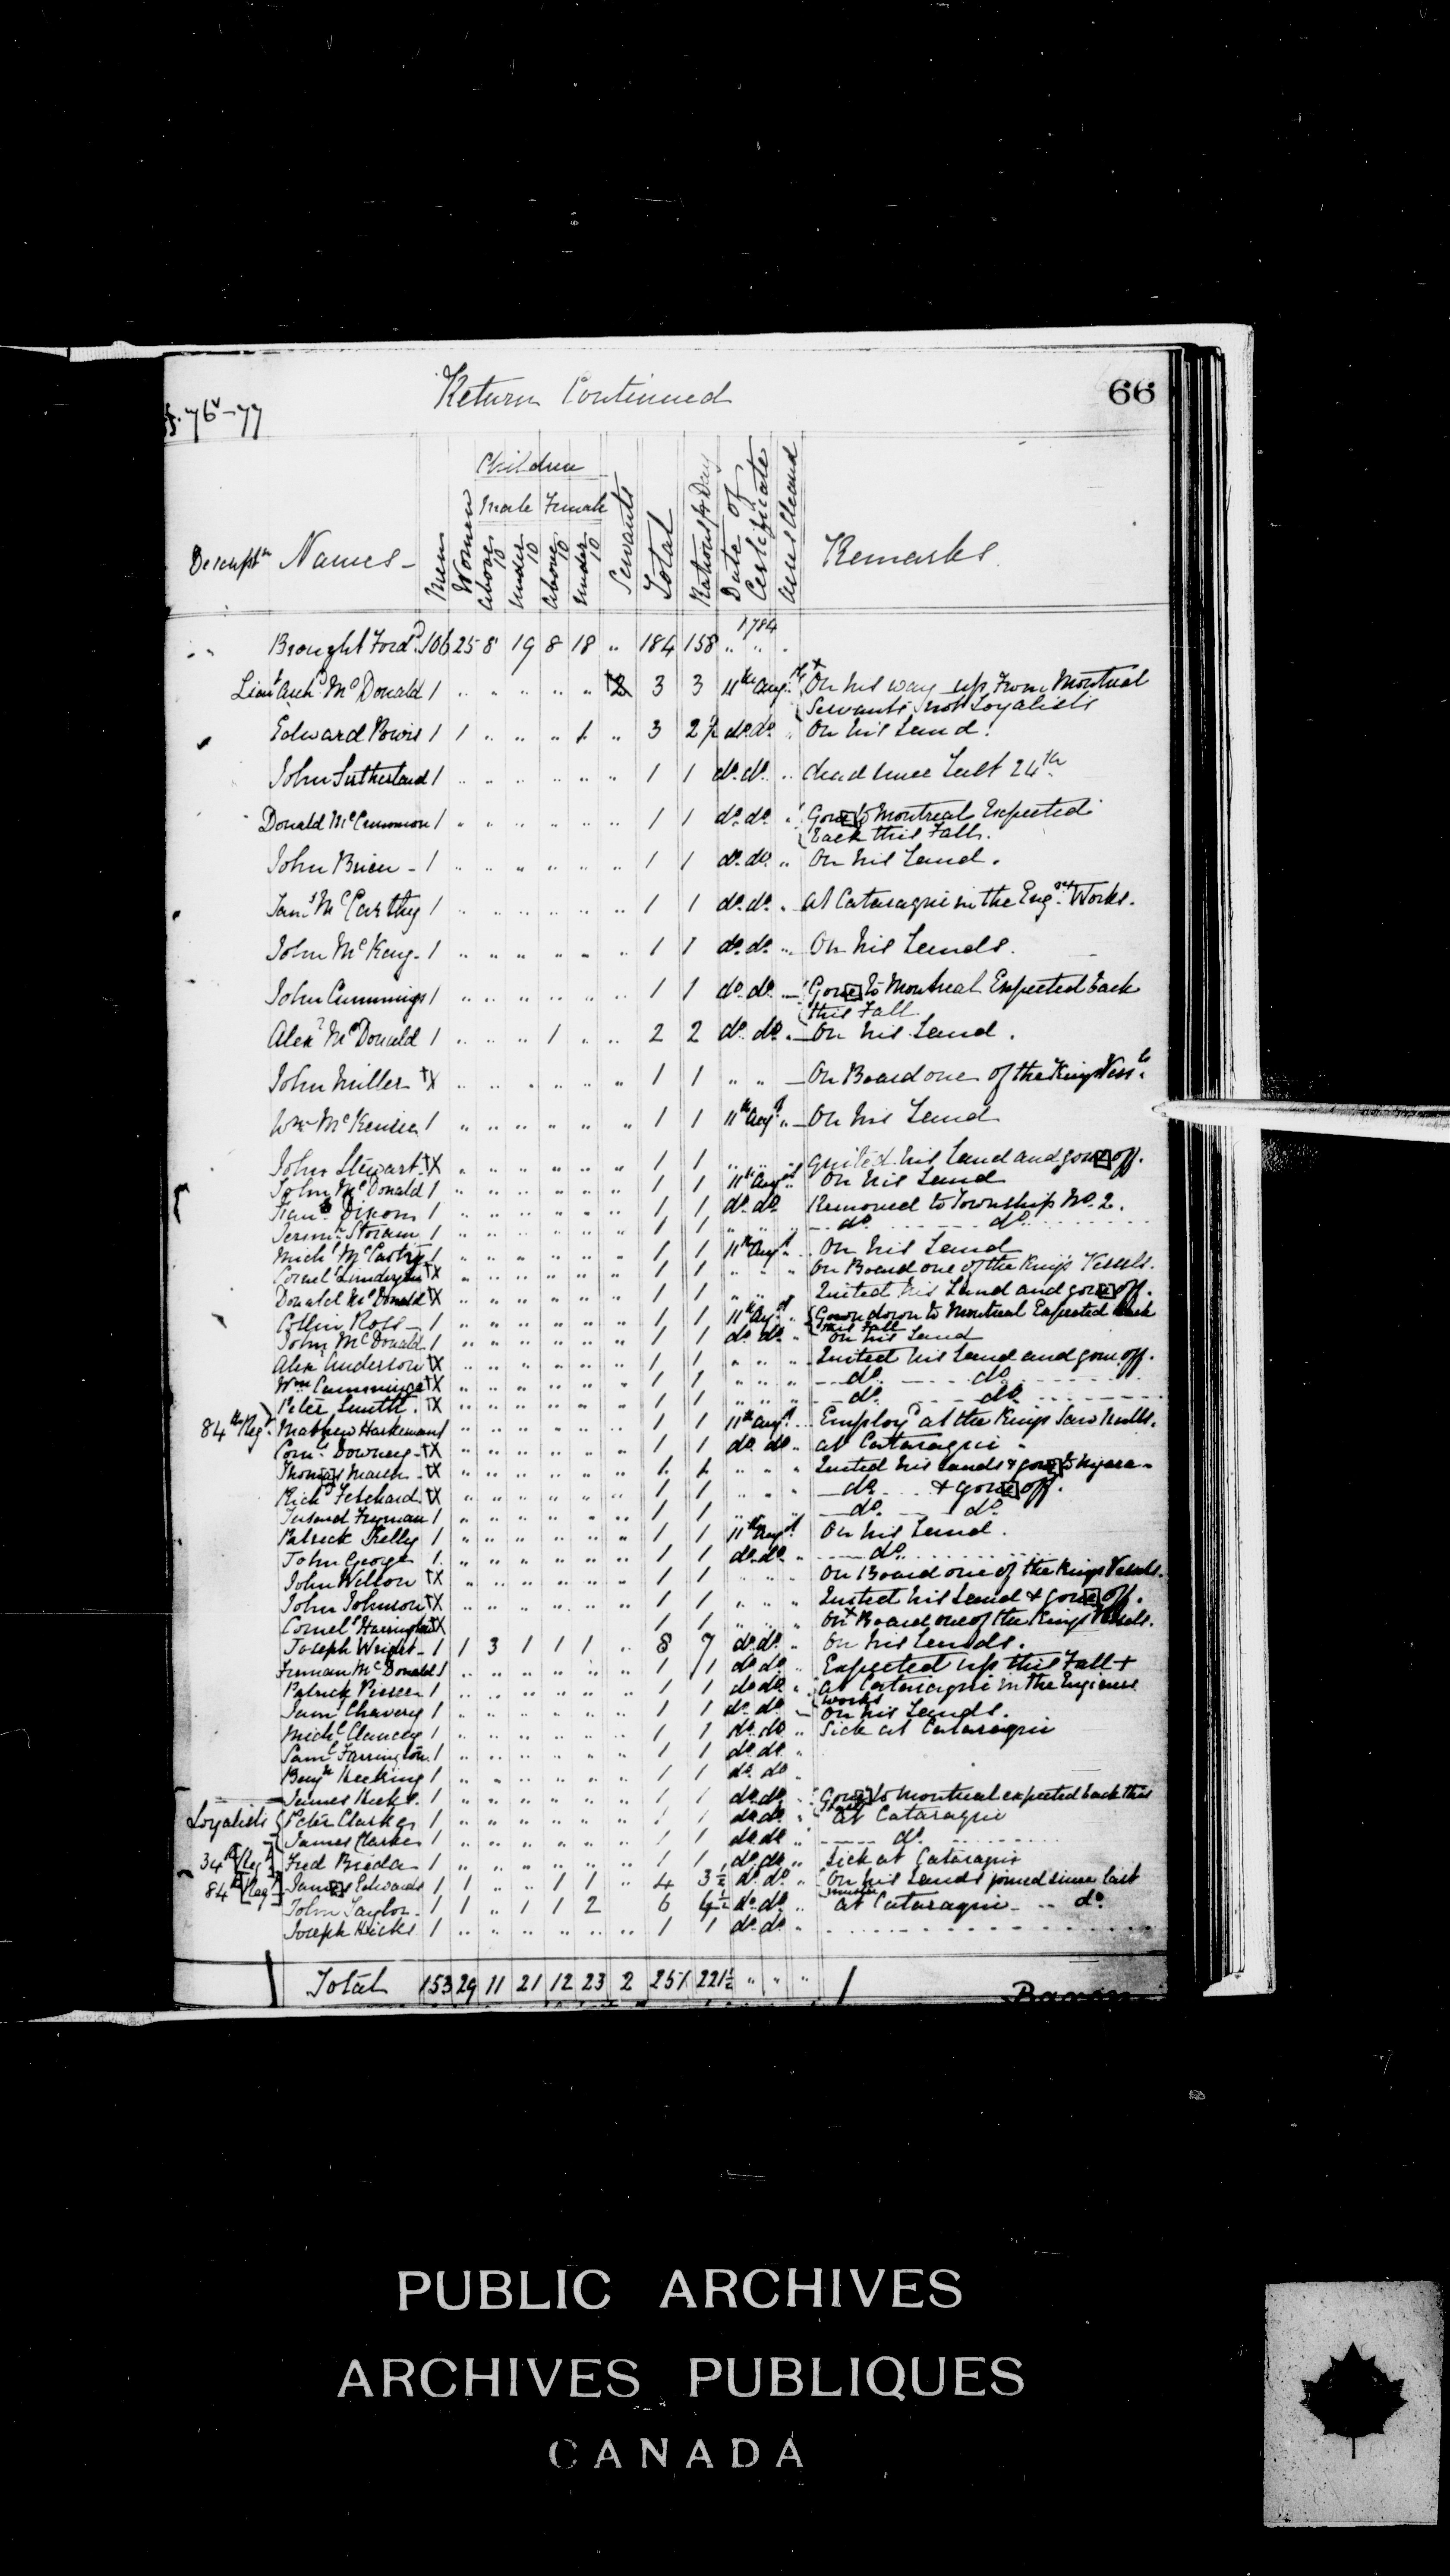 Return Continued
66
ff. 76v-77
Children
Male Female
Descriptn Names - Men Women above 10 under 10 above 10 under 10 Servants Total Rations pr Day Date of Certificate Remarks
1784
Brought Ford. 106 25 8 19 8 18 " 184 158 " " "
Lieut Archd McDonald 1 " " " " " 2 3 3 11th Augt On his way up from Montreal
Servants not Loyalists
Edward Powis 1 1 " " " 1 " 3 2½ do. do. " On his Land.
John Sutherland 1 " " " " " " 1 1 do. do. " dead since last 24th
Donald McCrummon 1 " " " " " " 1 1 do. do. " Gone to Montreal Expected
back this Fall.
John Brien - 1 " " " " " " 1 1 do. do. " On his Land.
Jams McCarthy 1 " " " " " " 1 1 do. do. " at Cataraqui in the Engrs Works.
John McKay - 1 " " " " " " 1 1 do. do. " On his Lands.
John Cummings 1 " " " " " " 1 1 do. do. Gone to Montreal Expected back
this Fall.
Alexr McDonald 1 " " " 1 " " 2 2 do. do. " On his Land.
John Miller †X " " " " " " 1 1 " " On Board one of the Kings Vessls
Wm McKensie 1 " " " " " " 1 1 11th Augt " On his Land
John Stewart †X " " " " " " 1 1 " " " quited his Land and gone off.
John McDonald 1 " " " " " " 1 1 11th Augt " On his Land
Dixon 1 " " " " " " 1 1 do. do. Removed to Township No. 2.
1 " " " " " " 1 1 " " " do. do.
Michl McCarthy 1 " " " " " " 1 1 11th Augt " On his Land
Cornels †X " " " " " " 1 1 " " " On Board one of the Kings Vessels.
Donald McDonald †X " " " " " " 1 1 " " Quited his Land and gone off.
Collin Ross - 1 " " " " " " 1 1 11th Augt " Gone down to Montreal Expected back
this Fall
John McDonald 1 " " " " " " 1 1 do. do. " On his Land
Alexr Anderson †X " " " " " " 1 1 " " " Quited his Land and gone off.
Wm Cummings †X " " " " " " 1 1 " " " do. do.
Peter Smith. †X " " " " " " 1 1 " " " do. do.
84th Regt Mathew 1 " " " " " " 1 1 11th Augt " Employd at the Kings Saw Mills.
Corns Downey - †X " " " " " " 1 1 do. do. " at Cataraqui -
Thomas March - †X " " " " " " 1 1 " " " Quited his Lands & gone to Nigara -
Richd †X " " " " " " 1 1 " " " do. & gone off.
Fryman 1 " " " " " " 1 1 " " " do. do.
Patrick Kelly 1 " " " " " " 1 1 11th Augt On his Land.
John George 1 " " " " " " 1 1 do. do. " do.
John Wilson †X " " " " " " 1 1 " " " On Board one of the Kings Vessels.
John Johnson †X " " " " " " 1 1 " " " Quited his Land & gone off.
Cornels Harrington †X " " " " " " 1 1 " " " On Board one of the Kings Vessels.
Joseph Wright - 1 1 3 1 1 1 " 8 7 do. do. " On his Lands.
McDonald 1 " " " " " " 1 1 do. do. " Expected up this Fall +
Patrick 1 " " " " " " 1 1 do. do. " at Cataraqui in the Engineers
Works
Jams 1 " " " " " " 1 1 do. do. On his Lands.
Michl Clancey 1 " " " " " " 1 1 do. do. " Sick at Cataraqui
Saml Farrington 1 " " " " " " 1 1 do. do. "
Benjn 1 " " " " " " 1 1 do. do.
James Hicks. 1 " " " " " " 1 1 do. do. Gone to Montreal expected back this
Loyalists Peter Clarke 1 " " " " " " 1 1 do. do. " at Cataraqui
James Clarke 1 " " " " " " 1 1 do. do. " do.
34th Regt Fred Breda 1 " " " " " " 1 1 do. do. " Sick at Cataraqui
84th Regt James Edwards 1 1 " " 1 1 " 4 3½ do. do. " On his Lands joined since last
muster
John Taylor - 1 1 " 1 1 2 6 4½ do. do. " at Cataraqui - " do.
Joseph Hicks 1 " " " " " " 1 1 do. do. "
Total 153 29 11 21 12 23 2 251 221½ " " "
PUBLIC ARCHIVES
ARCHIVES PUBLIQUES
CANADA